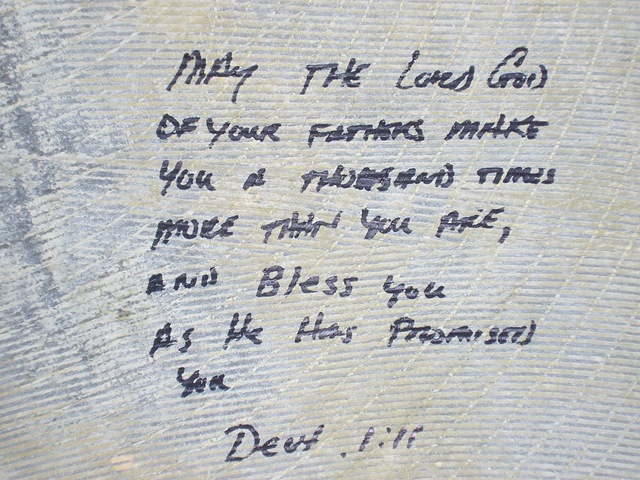 MAY THE LORD GOD
OF YOUR FATHERS MAKE
YOU A THOUSAND TIMES
MORE THAN YOU ARE,
AND Bless YOU
AS HE HAS PROMISED
YOU
Deut. 1:11